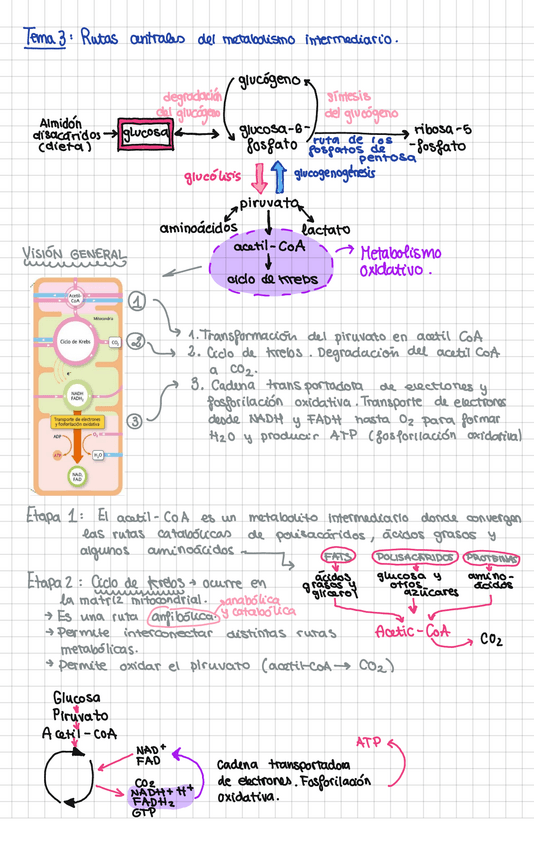 Tema 3: Rutas centrales del metabolismo intermediario.
glucógeno
degradación
del glucógeno
síntesis
del glucógeno
Almidón
disacáridos
(dieta)
glucosa
glucosa-6-
fosfato
ruta de los
fosfatos de
pentosa
ribosa-5
-fosfato
glucólisis
glucogenogénesis
piruvato
aminoácidos
lactato
acetil-CoA
ciclo de Krebs
Metabolismo
oxidativo.
VISIÓN GENERAL
Acetil-
CoA
Mitocondria
Ciclo de Krebs
CO₂
e⁻
NADH
FADH₂
Transporte de electrones
y fosforilación oxidativa
ADP
O₂
ATP
H₂O
NAD,
FAD
1
2
3
1. Transformación del piruvato en acetil CoA
2. Ciclo de Krebs. Degradación del acetil CoA
a CO₂.
3. Cadena transportadora de electrones y
fosforilación oxidativa. Transporte de electrones
desde NADH y FADH hasta O₂ para formar
H₂O y producir ATP (fosforilación oxidativa)
Etapa 1: El acetil-CoA es un metabolito intermediario donde convergen
las rutas catabólicas de polisacáridos, ácidos grasos y
algunos aminoácidos
FATS
POLISACÁRIDOS
PROTEINAS
ácidos
grasos y
glicerol
glucosa y
otros
azúcares
amino-
ácidos
Acetic-CoA
CO₂
Etapa 2: Ciclo de Krebs → ocurre en
la matriz mitocondrial.
→ Es una ruta anfibólica.
→ anabólica
y catabólica
→ Permite interconectar distintas ruras
metabólicas.
→ Permite oxidar el piruvato (acetil-CoA → CO₂)
Glucosa
Piruvato
Acetil-CoA
NAD⁺
FAD
CO₂
NADH + H⁺
FADH₂
GTP
Cadena transportadora
de electrones. Fosforilación
oxidativa.
ATP